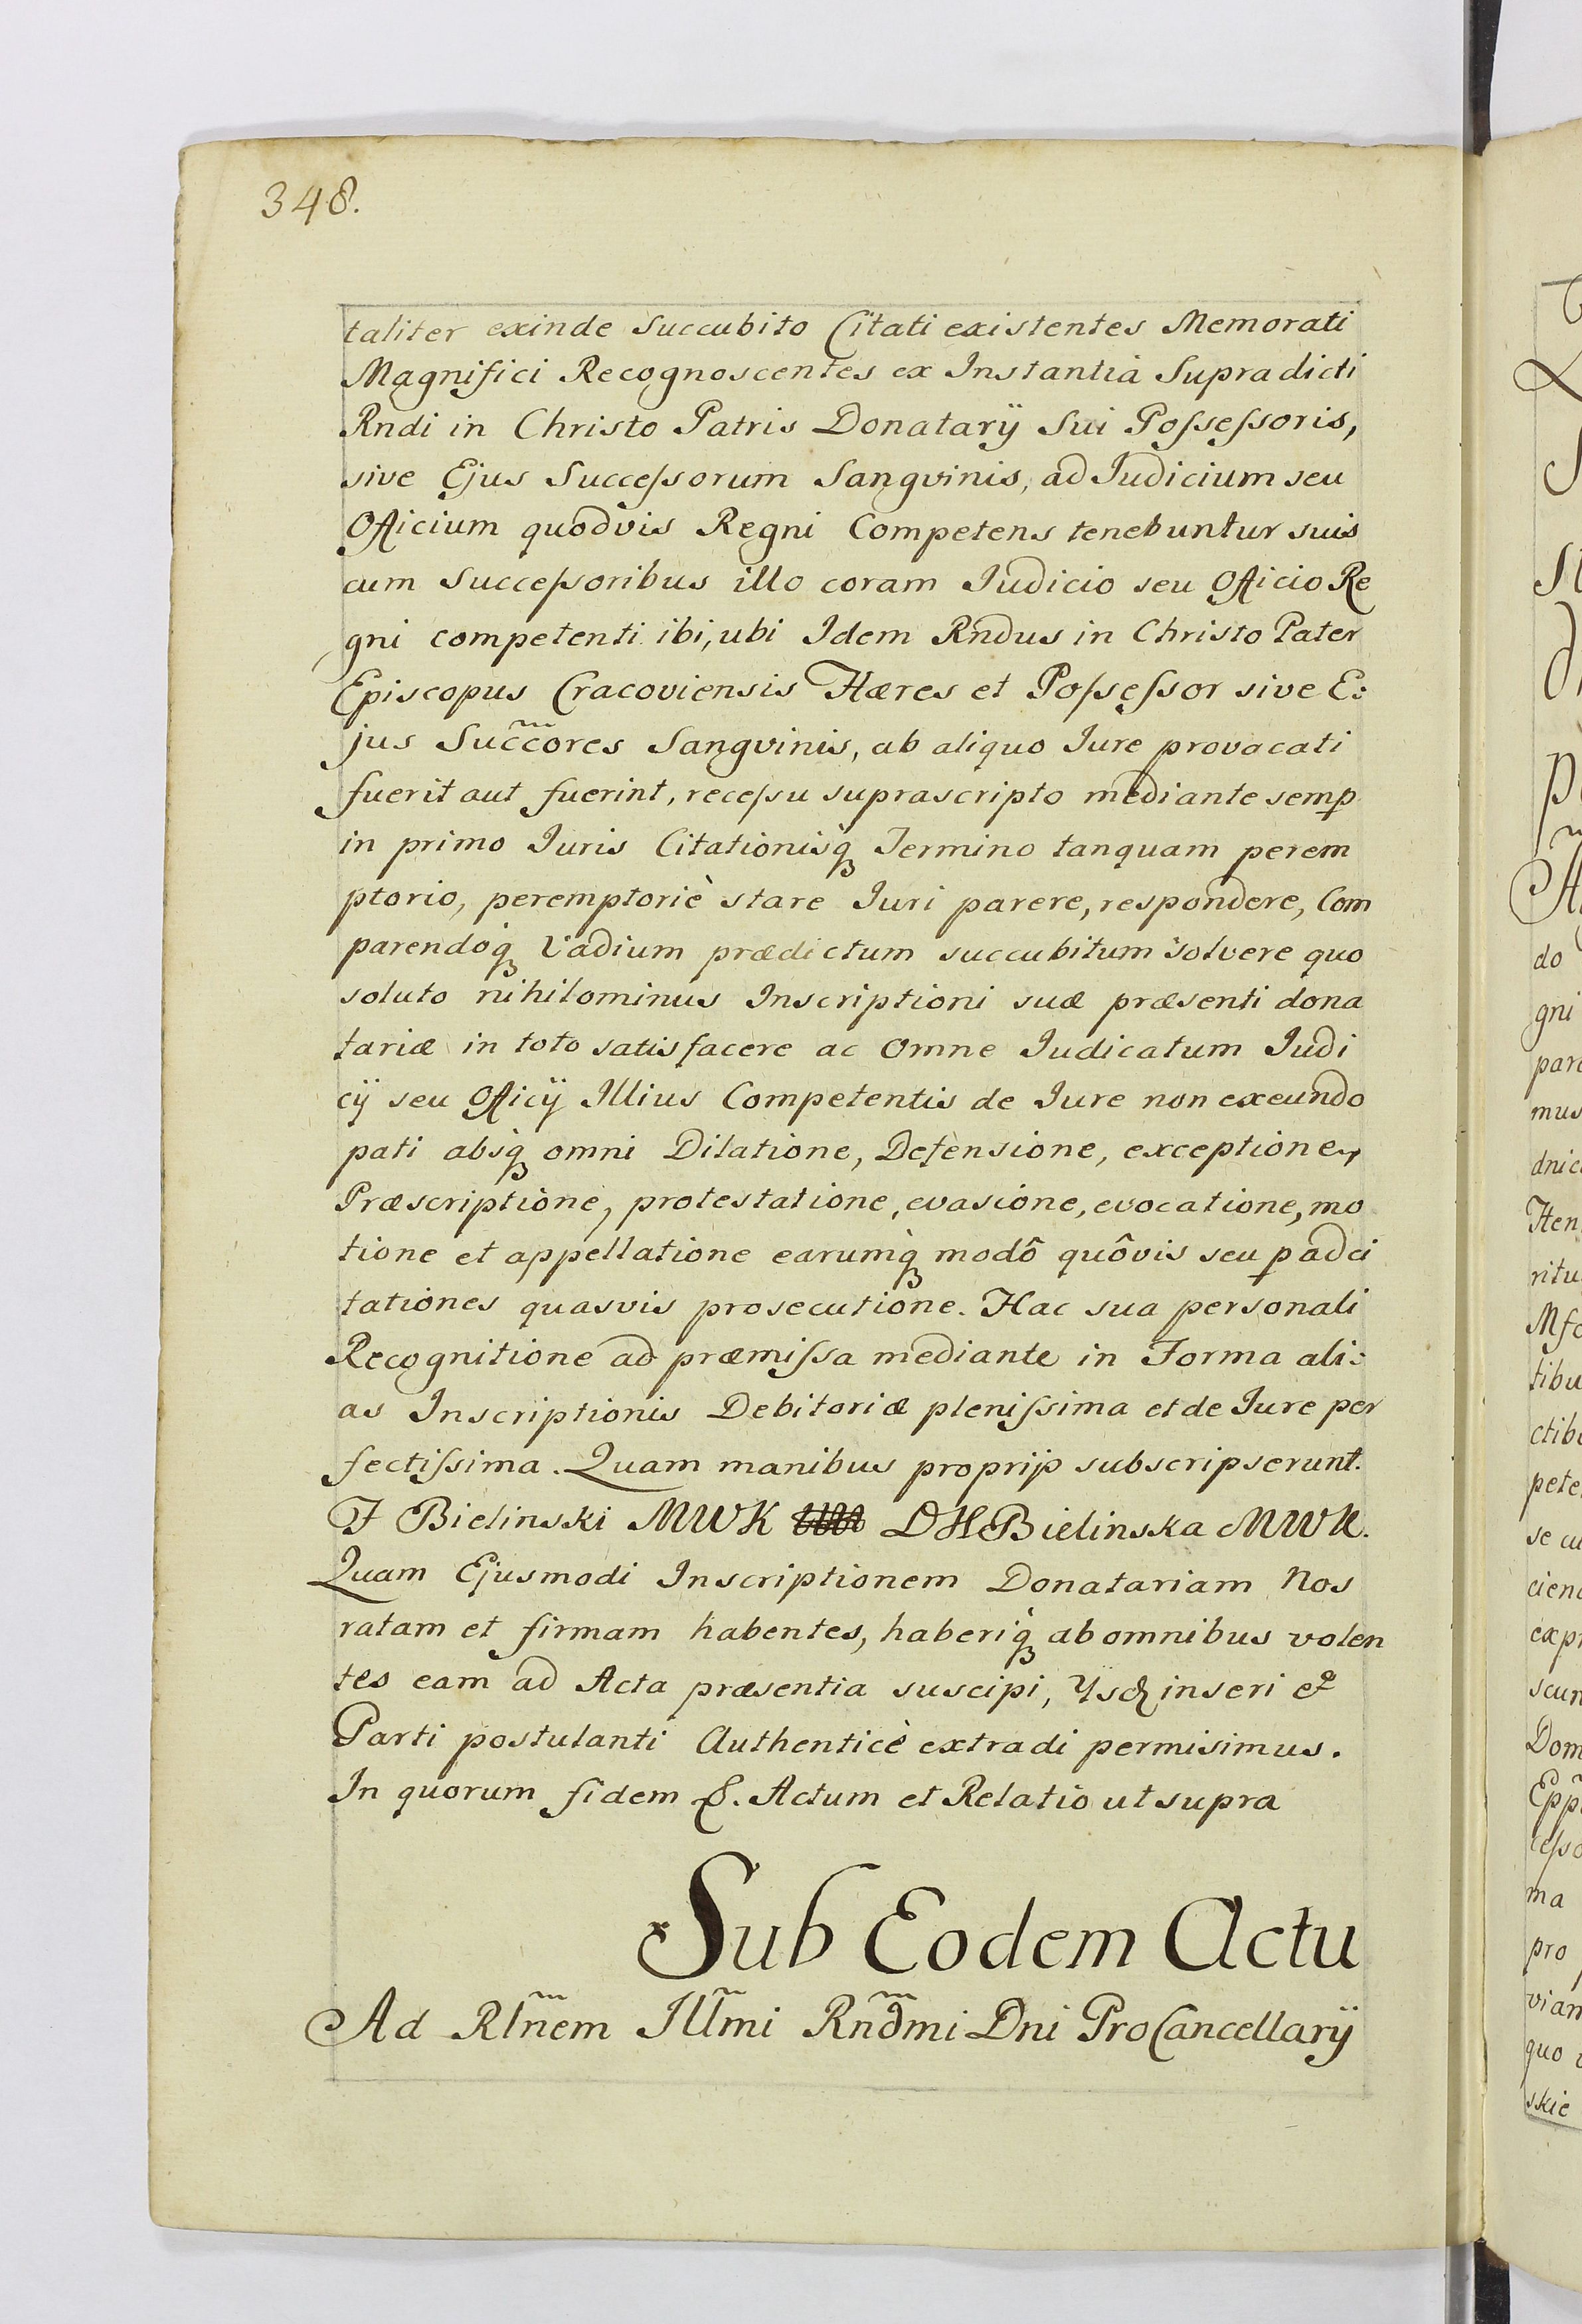 348.
taliter exinde Succubito Citati existentes Memorati
Magnifici Recognoscentes ex Instantia Supradicti
Rndi in Christo Patris Donatarÿ Sui Poſseſsoris,
sive Ejus Succeſsorum Sangvinis, ad Judicium seu
Officium quodvis Regni Competens tenebuntur suis
cum Succeſsoribus illo coram Judicio seu Officio Re
gni competenti ibi, ubi Idem Rndus in Christo Pater
Episcopus Cracoviensis Hæres et Poſseſsor sive E:
jus Succ̃ores Sangvinis, ab aliquo Jure provocati
fuerit aut fuerint, receſsu suprascripto mediante semꝑ
in primo Juris Citationisq́ꝫ Termino tanquam perem
ptorio, peremptoriè stare Juri parere, respondere, Com
parendoq́ꝫ Vadium prædictum succubitum solvere quo
soluto nihilominus Inscriptioni suæ præsenti dona
tariæ in toto satisfacere ac Omne Judicatum Judi
cÿ seu Officÿ Illius Competentis de Jure non exeundo
pati absq́ꝫ omni Dilatione, Defensione, exceptione,
Præscriptione, protestatione, evasione, evocatione, mo
tione et appellatione earumq́ꝫ modô quôvis seu ꝑ adci
tationes quasvis prosecutione. Hac sua personali
Recognitione ad præmiſsa mediante in Forma ali:
as Inscriptionis Debitoriæ pleniſsima et de Jure per
fectiſsima. Quam manibus proprijs subscripserunt.
F Bielinski MWK DHBielinska MWK.
Quam Ejusmodi Inscriptionem Donatariam Nos
ratam et firmam habentes, haberiq́ꝫ ab omnibus volen
tes eam ad Acta præsentia suscipi, Ysqꝫ inseri et
Parti postulanti Authenticè extradi permisimus.
In quorum fidem &. Actum et Relatio ut supra
Sub Eodem Actu
Ad Rl̃nem Jll̃mi Rñdmi Dni ProCancellarÿ